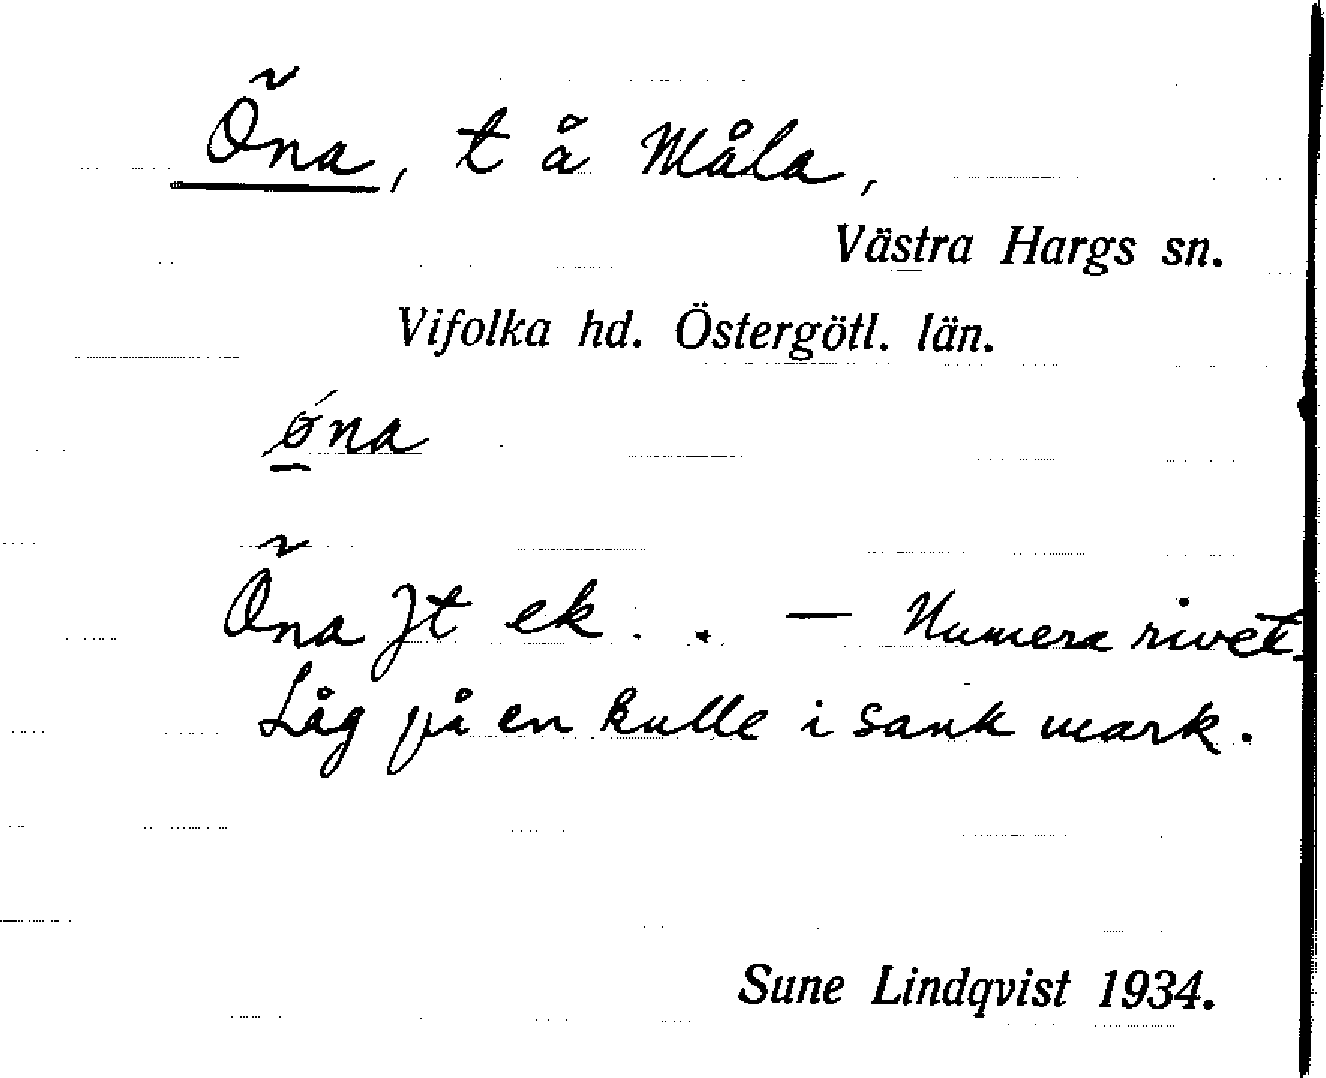 Öna, t å Måla,
Västra Hargs sn.
Vifolka hd. Östergötl. län.
ǿna
Öna Jt ek. . — Numera rivet.
Låg på en kulle i sank mark.
Sune Lindqvist 1934.